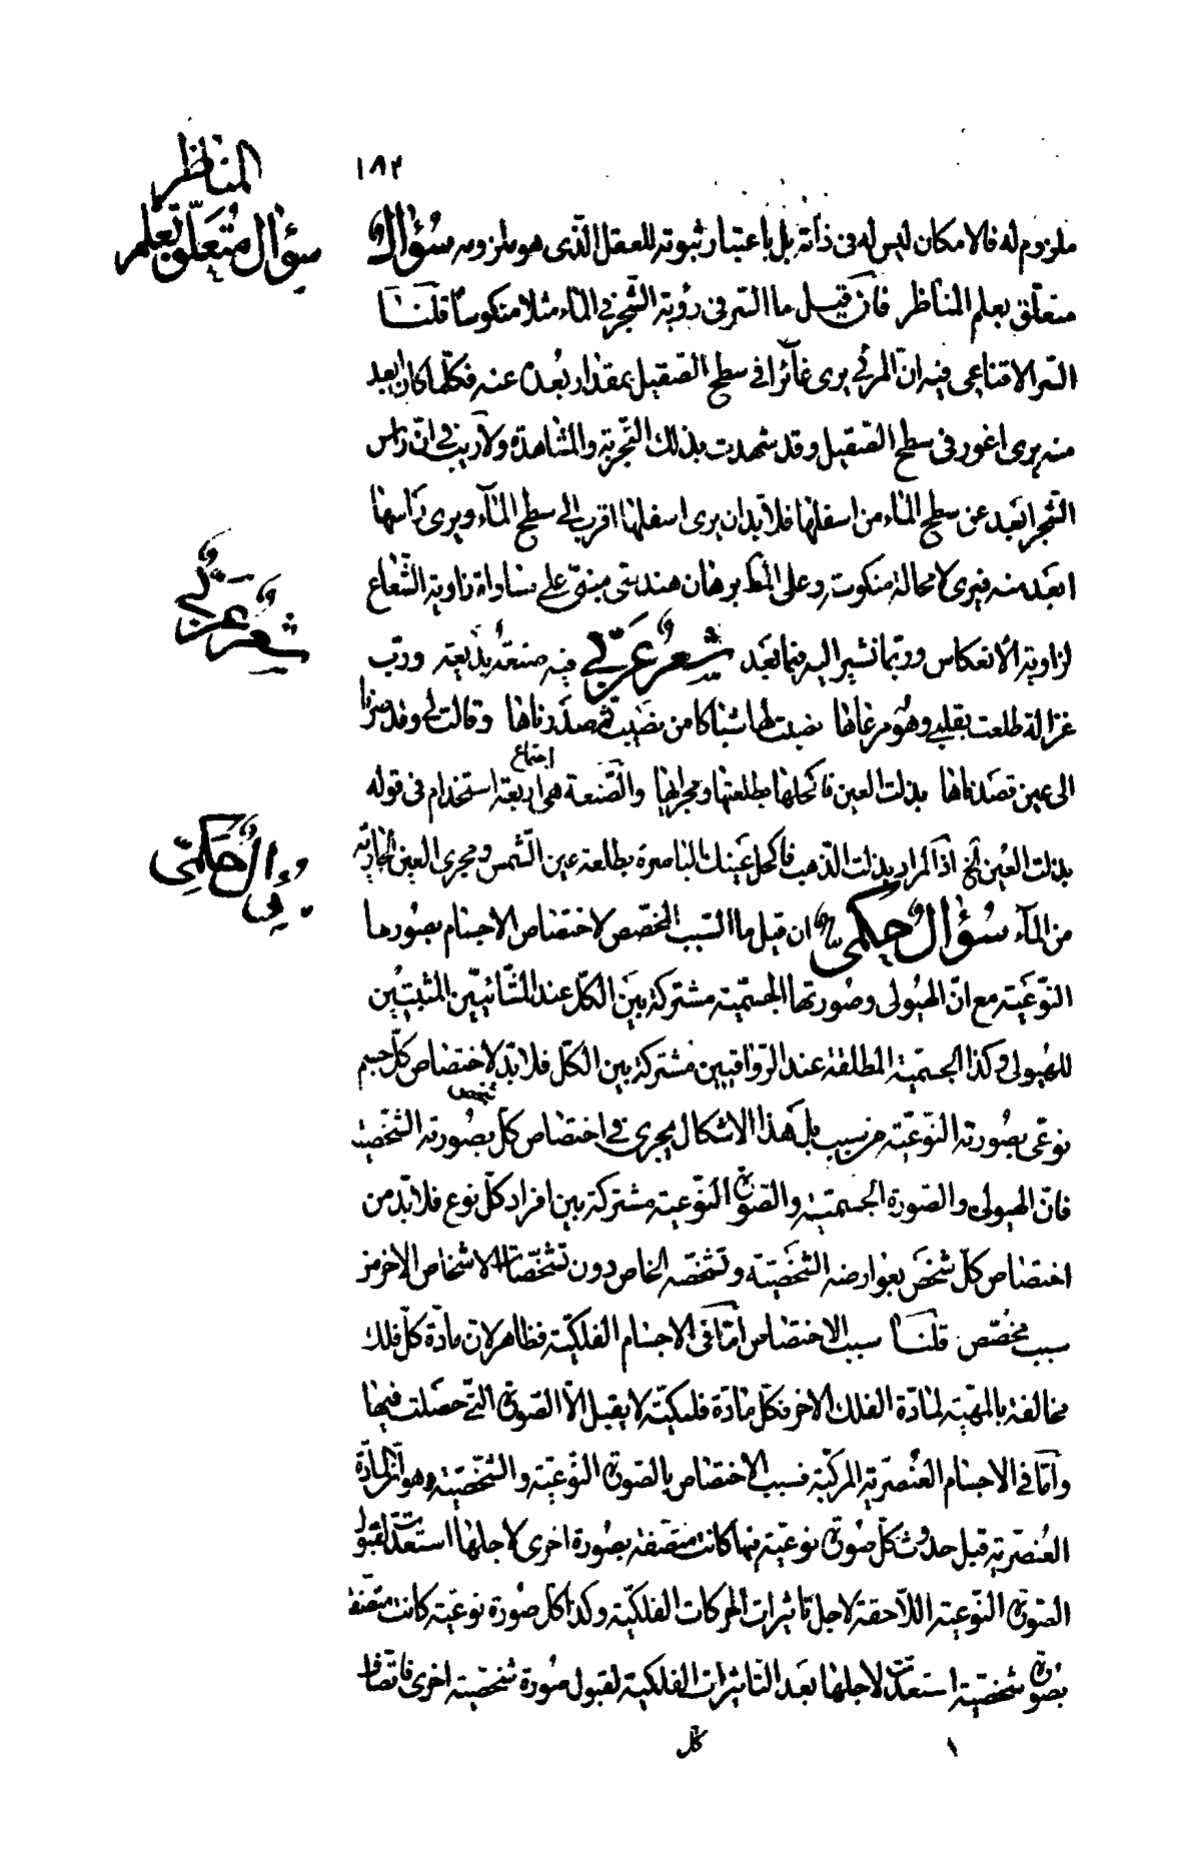 ١٨٢
المناظر
سؤال متعلّق بعلم
ملزوم له فالامكان ليس له فى ذاته بل باعتبار ثبوته للعقل الّذى هو ملزومه سُؤالٌ
متعلّق بعلم المناظر فان قيل ما السر فى رؤية الشّجر فى الماء مثلا منكوساً قلنا
السّر الاقناعى فيه انّ المرئى يرى غائرا فى سطح الصّقيل بمقدار بُعده عنه فكلّما كان ابعد
منه يرى اغور فى سطح الصّقيل وقد شهدت بذلك التّجربة والمشاهدة ولا ريب فى انّ راس
الشّجر ابعد عن سطح الماء من اسفلها فلا بد ان يرى اسفلها اقرب الى سطح المآء ويرى راسها
ابعد منه فيرى لا محالة منكوسة وعلى المط برهان هندسىّ مبنىّ على مساواة زاوية الشّعاع
لزاوية الأنعكاس وربّما نشير اليه فيما بَعد شعرٌ عَرَبىٌّ فيه صنعة بديعة وربّ
شعرٌ عربىٌّ
غزالة طلعت بقلبى وهُو مرعاها نصبت لها شباكا من نضيب ثم صدناها وقالت لى وقد صرنا
الى عين قصدناها بذلت العين فاكحلها بطلعتها ومجراها والصّنعة هى اجتماع اربعة استخدام فى قوله
بذلت العين الخ اذ المراد بذلت الذّهب فاكحل عَينك الباصرة بطلعة عين الشّمس ومجرى العين الجارية
من المآء سُؤالٌ حِكمىٌ ان قيل ما السّبب المخصّص لاختصاص الاجسام بصُورها
سؤالٌ حكمىّ
النّوعيّة مع انّ الهيُولى وصُورتها الجسميّة مشتركة بين الكلّ عند المشّائيّين المثبتين
للهيُولى وكذا الجسميّة المطلقة عند الرّواقيين مشتركة بين الكلّ فلا بدّ لاختصاص كلّ جسم
نوعى بصُورته النّوعيّة من سبب بل هَذا الاشكال يجرى فى اختصاص كلّ شخص بصُورته الشّخصيّة
فانّ الهيولى والصّورة الجسميّة والصّورة النّوعية مشتركة بين افراد كلّ نوع فلا بدّ من
اختصاص كلّ شخص بعوارضه الشّخصيّة وتشخّصه الخاص دون تشخّصات الاشخاص الاخر من
سبب مخصّص قلنا سبب الاختصاص امّا فى الاجسام الفلكيّة فظاهر لان مادّة كلّ فلك
مخالفة بالمهيّة لمادّة الفلك الاخر فكلّ مادّة فلكيّة لا يقبل الاّ الصّورة الّتى حصلت فيها
وامّا فى الاجسام العُنصريّة المركّبة فسبب الاختصاص بالصّورة النّوعيّة والشّخصيّة وهو انّ المادّة
العُنصريّة قبل حدوث كلّ صورة نوعيّة فيها كانت متّصفة بصُورة اخرى لاجلها استعدّت لقبول
الصّورة النّوعية اللاّحقة لاجل تاثيرات الحركات الفلكيّة وكذا كلّ صُورة نوعيّة كانت متّصفة
بصُورة شخصيّة استعدّت لاجلها بَعد التاثيرات الفلكية لقبول صُورة شخصيّة اخرى فاتّصاف
كلّ